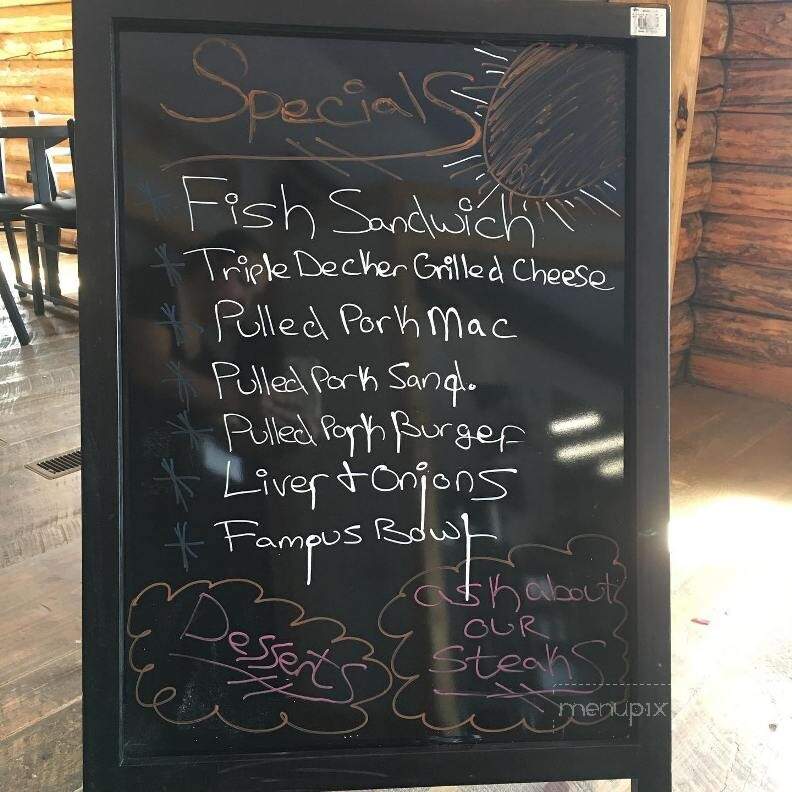 Specials
Fish Sandwich
Triple Decker Grilled Cheese
Pulled Pork Mac
Pulled Pork Sand.
Pulled Pork Burger
Liver + Onions
Famous Bowl
Desserts
ask about
OUR
Steaks
menupix